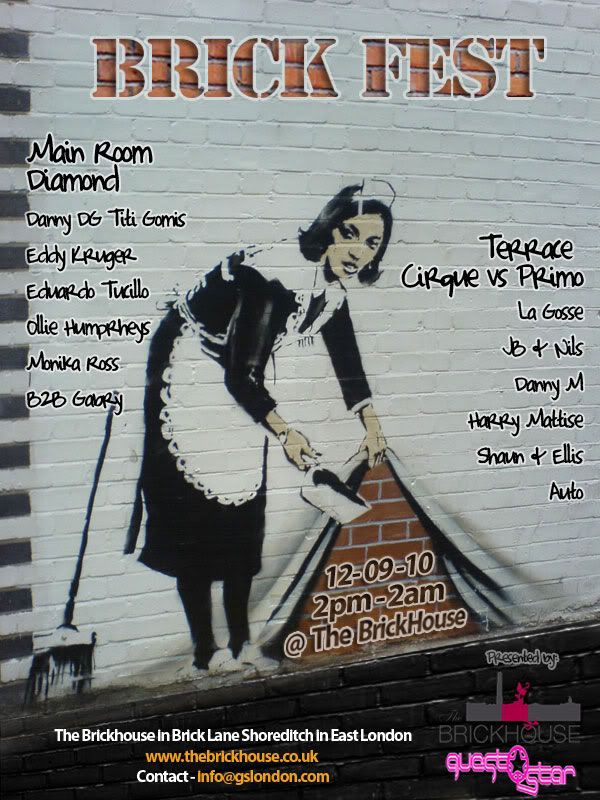 BRICK FEST
Main Room
Diamond
Danny DG Titi Gomis
Eddy Kruger
Eduardo Tucillo
Ollie Humprheys
Monika Ross
B2B Galary
Terrace
Cirque vs Primo
La Gosse
JB & Nils
Danny M
Harry Mattise
Shaun & Ellis
Auto
12-09-10
2pm-2am
@ The BrickHouse
Presented by:
The
BRICKHOUSE
guest star
The Brickhouse in Brick Lane Shoreditch in East London
www.thebrickhouse.co.uk
Contact - info@gslondon.com